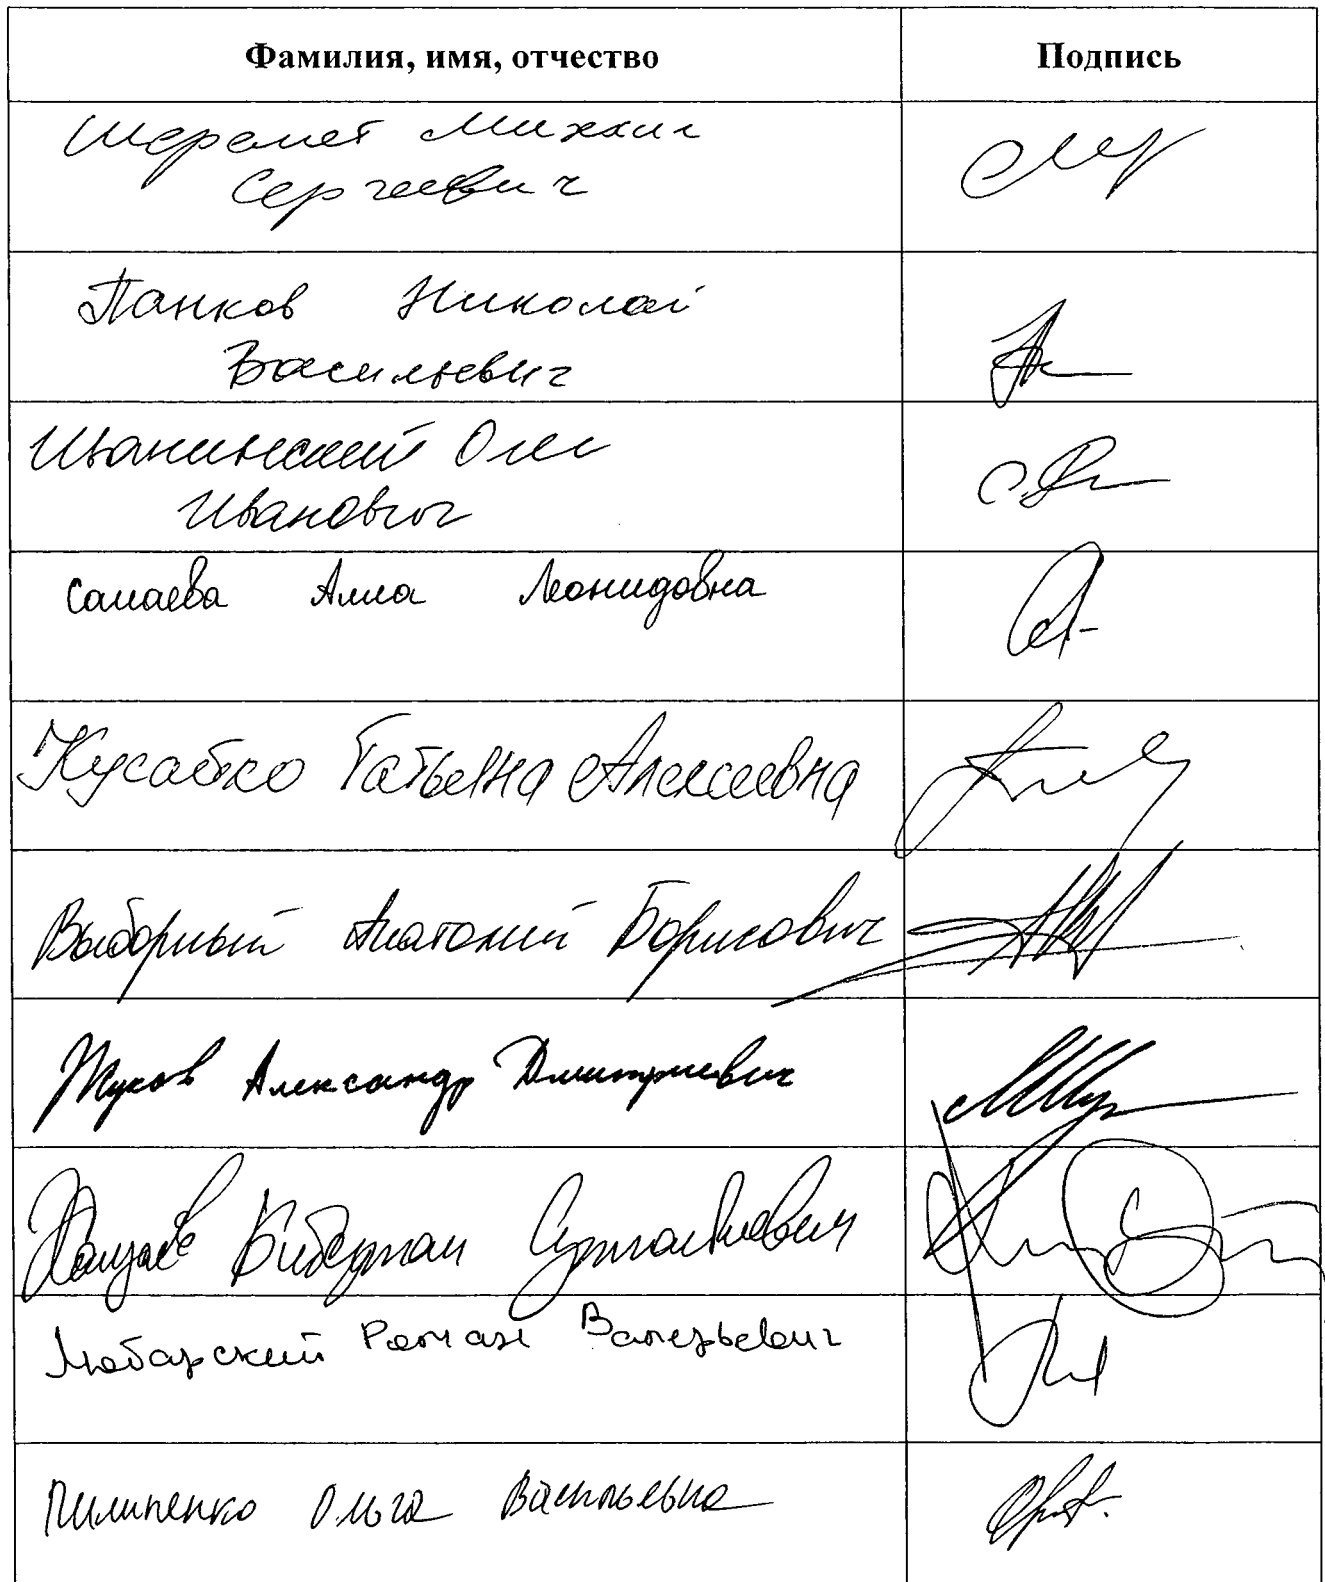 Фамилия, имя, отчество Подпись
Шеремет Михаил
Сергеевич
Панков Николай
Васильевич
Иванинский Олег
Иванович
Салаева Алла Леонидовна
Кусайко Татьяна Алексеевна
Выборный Анатолий Борисович
Жуков Александр Дмитриевич
Хамзаев Бийсултан Султанбиевич
Любарский Роман Валерьевич
Пилипенко Ольга Васильевна